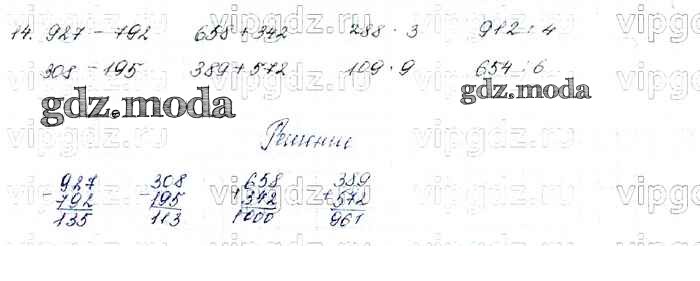 14. 927 - 792 658 + 342 288 · 3 912 : 4
308 - 195 389 + 572 109 · 9 654 : 6
gdz.moda gdz.moda
Решение
- 927 - 308 + 658 + 389
792 195 342 572
135 113 1000 961